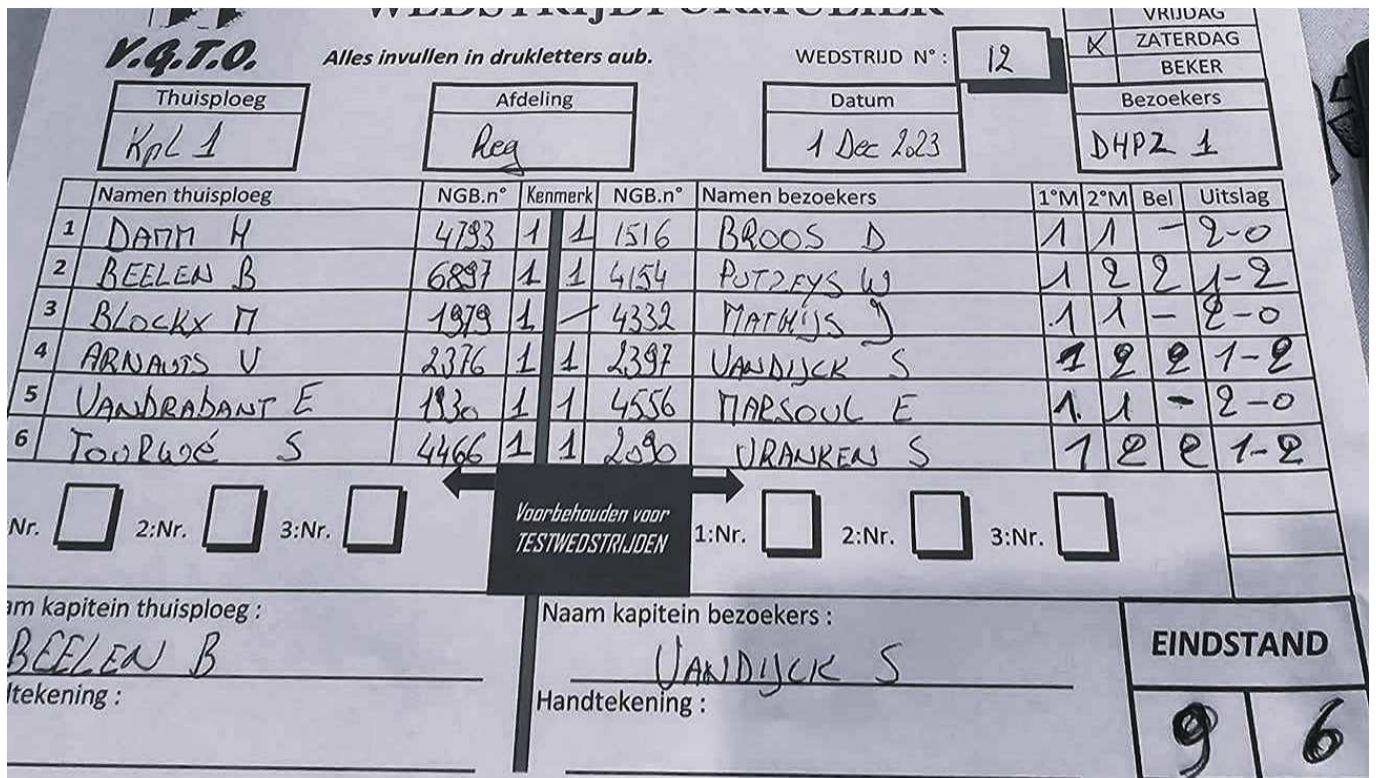 WEDSTRIJDFORMULIER
VRIJDAG
V.G.T.O. Alles invullen in drukletters aub. WEDSTRIJD N° : 12 X ZATERDAG
BEKER
Thuisploeg Afdeling Datum Bezoekers
KPL 1 Reg 1 Dec 2023 DHPZ 1
Namen thuisploeg NGB.n° Kenmerk NGB.n° Namen bezoekers 1°M 2°M Bel Uitslag
1 DAMM H 4793 1 1 1516 BROOS D 1 1 - 2-0
2 BEELEN B 6897 1 1 4154 PUTZEYS W 1 2 2 1-2
3 BLOCKX M 1979 1 - 4332 MATHIJS J 1 1 - 2-0
4 ARNAUTS V 2376 1 1 2397 VANDIJCK S 1 2 2 1-2
5 VANDRABANT E 1930 1 1 4556 MARSOUL E 1 1 - 2-0
6 S 4466 1 1 2090 VRANKEN S 1 2 2 1-2
Nr. 2:Nr. 3:Nr. Voorbehouden voor 1:Nr. 2:Nr. 3:Nr.
TESTWEDSTRIJDEN
am kapitein thuisploeg : Naam kapitein bezoekers : EINDSTAND
BEELEN B VANDIJCK S
dtekening : Handtekening : 9 6